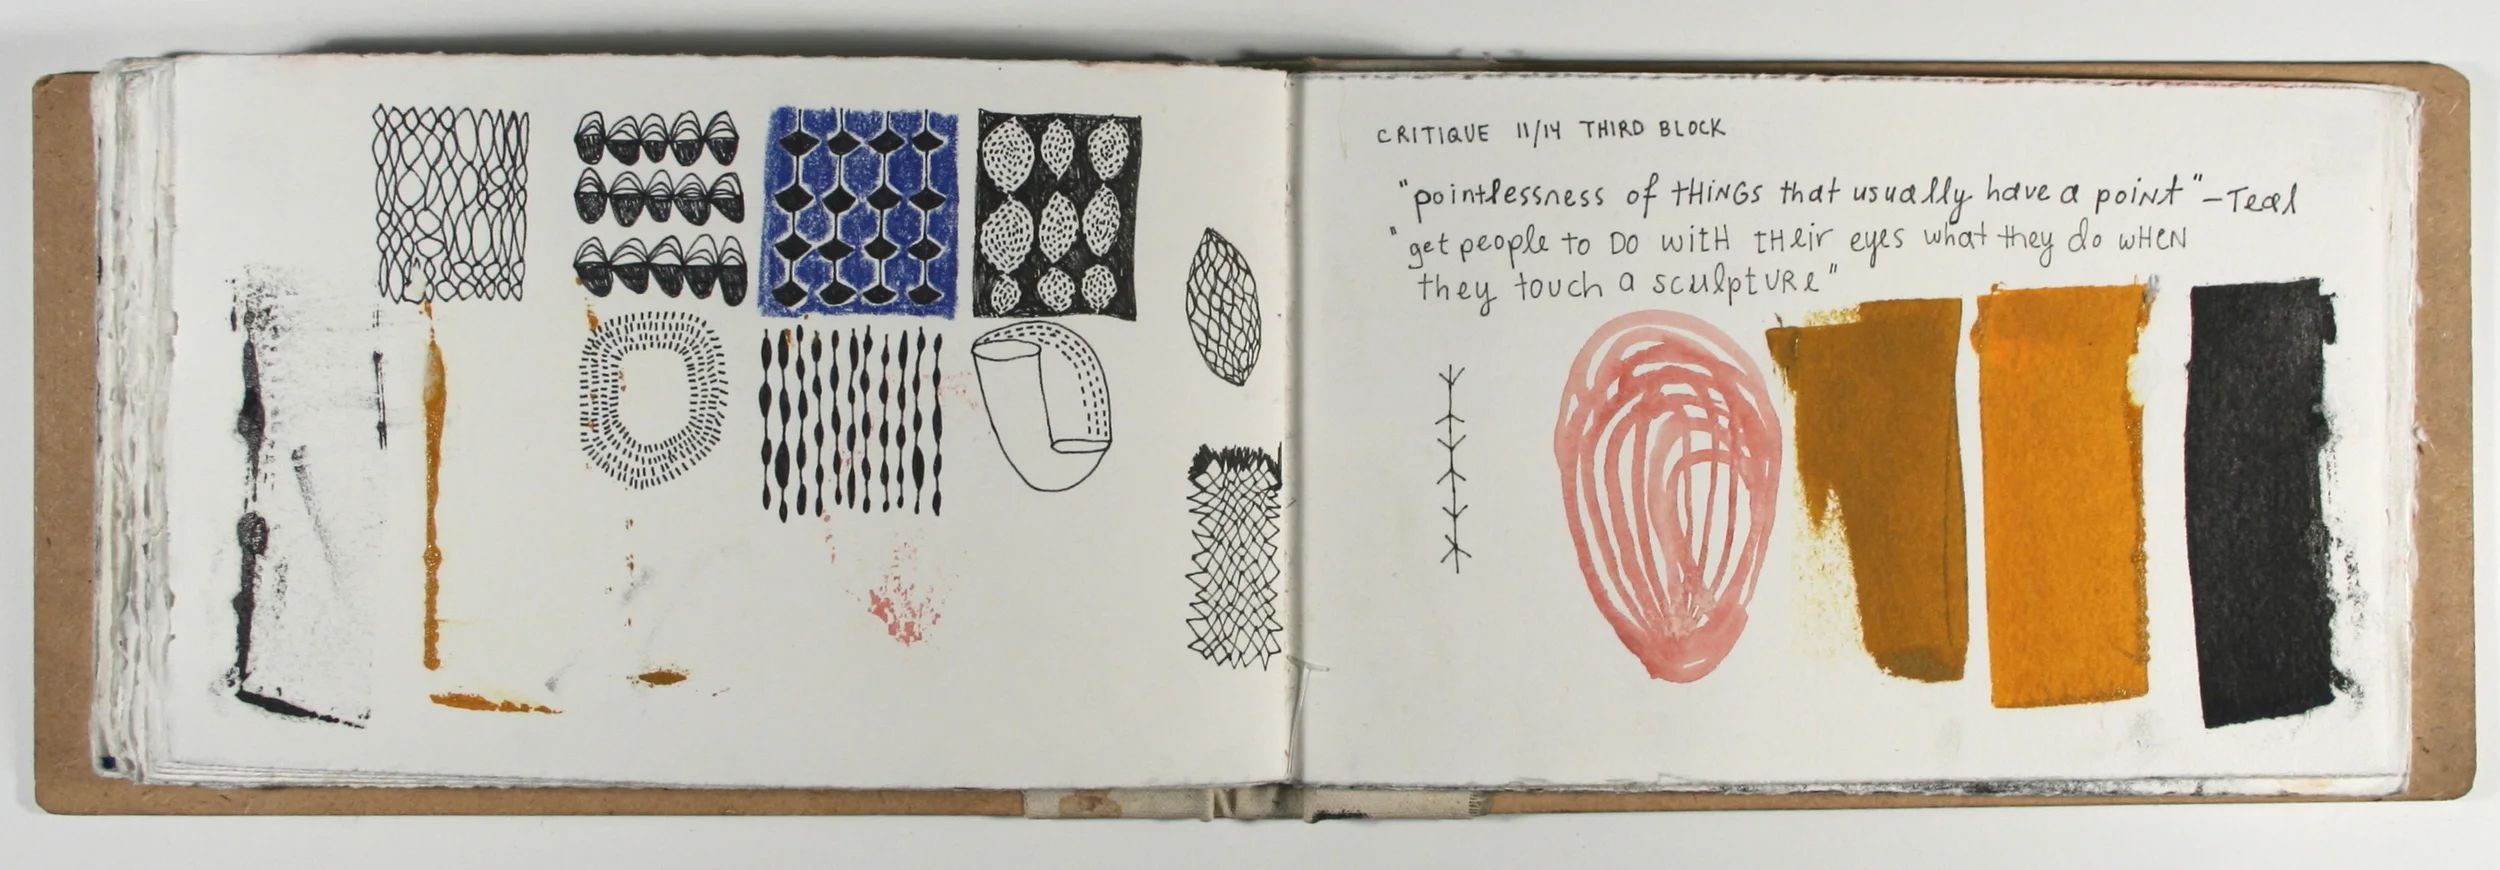 CRITIQUE 11/14 THIRD BLOCK
"pointlessness of THiNGS that usually have a point" -Teal
"get people to DO WitH tHeir eyes what they do wHeN
they touch a sculptURe"